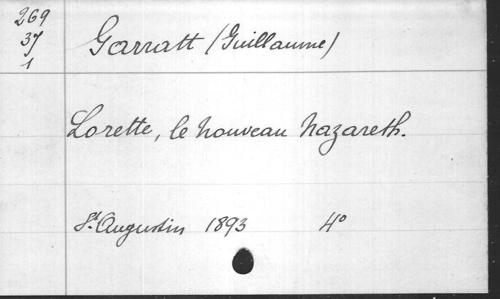 269
37
1
Garratt (Guillaume)
Lorette, le nouveau Nazareth.
St. Augustin 1893 4°